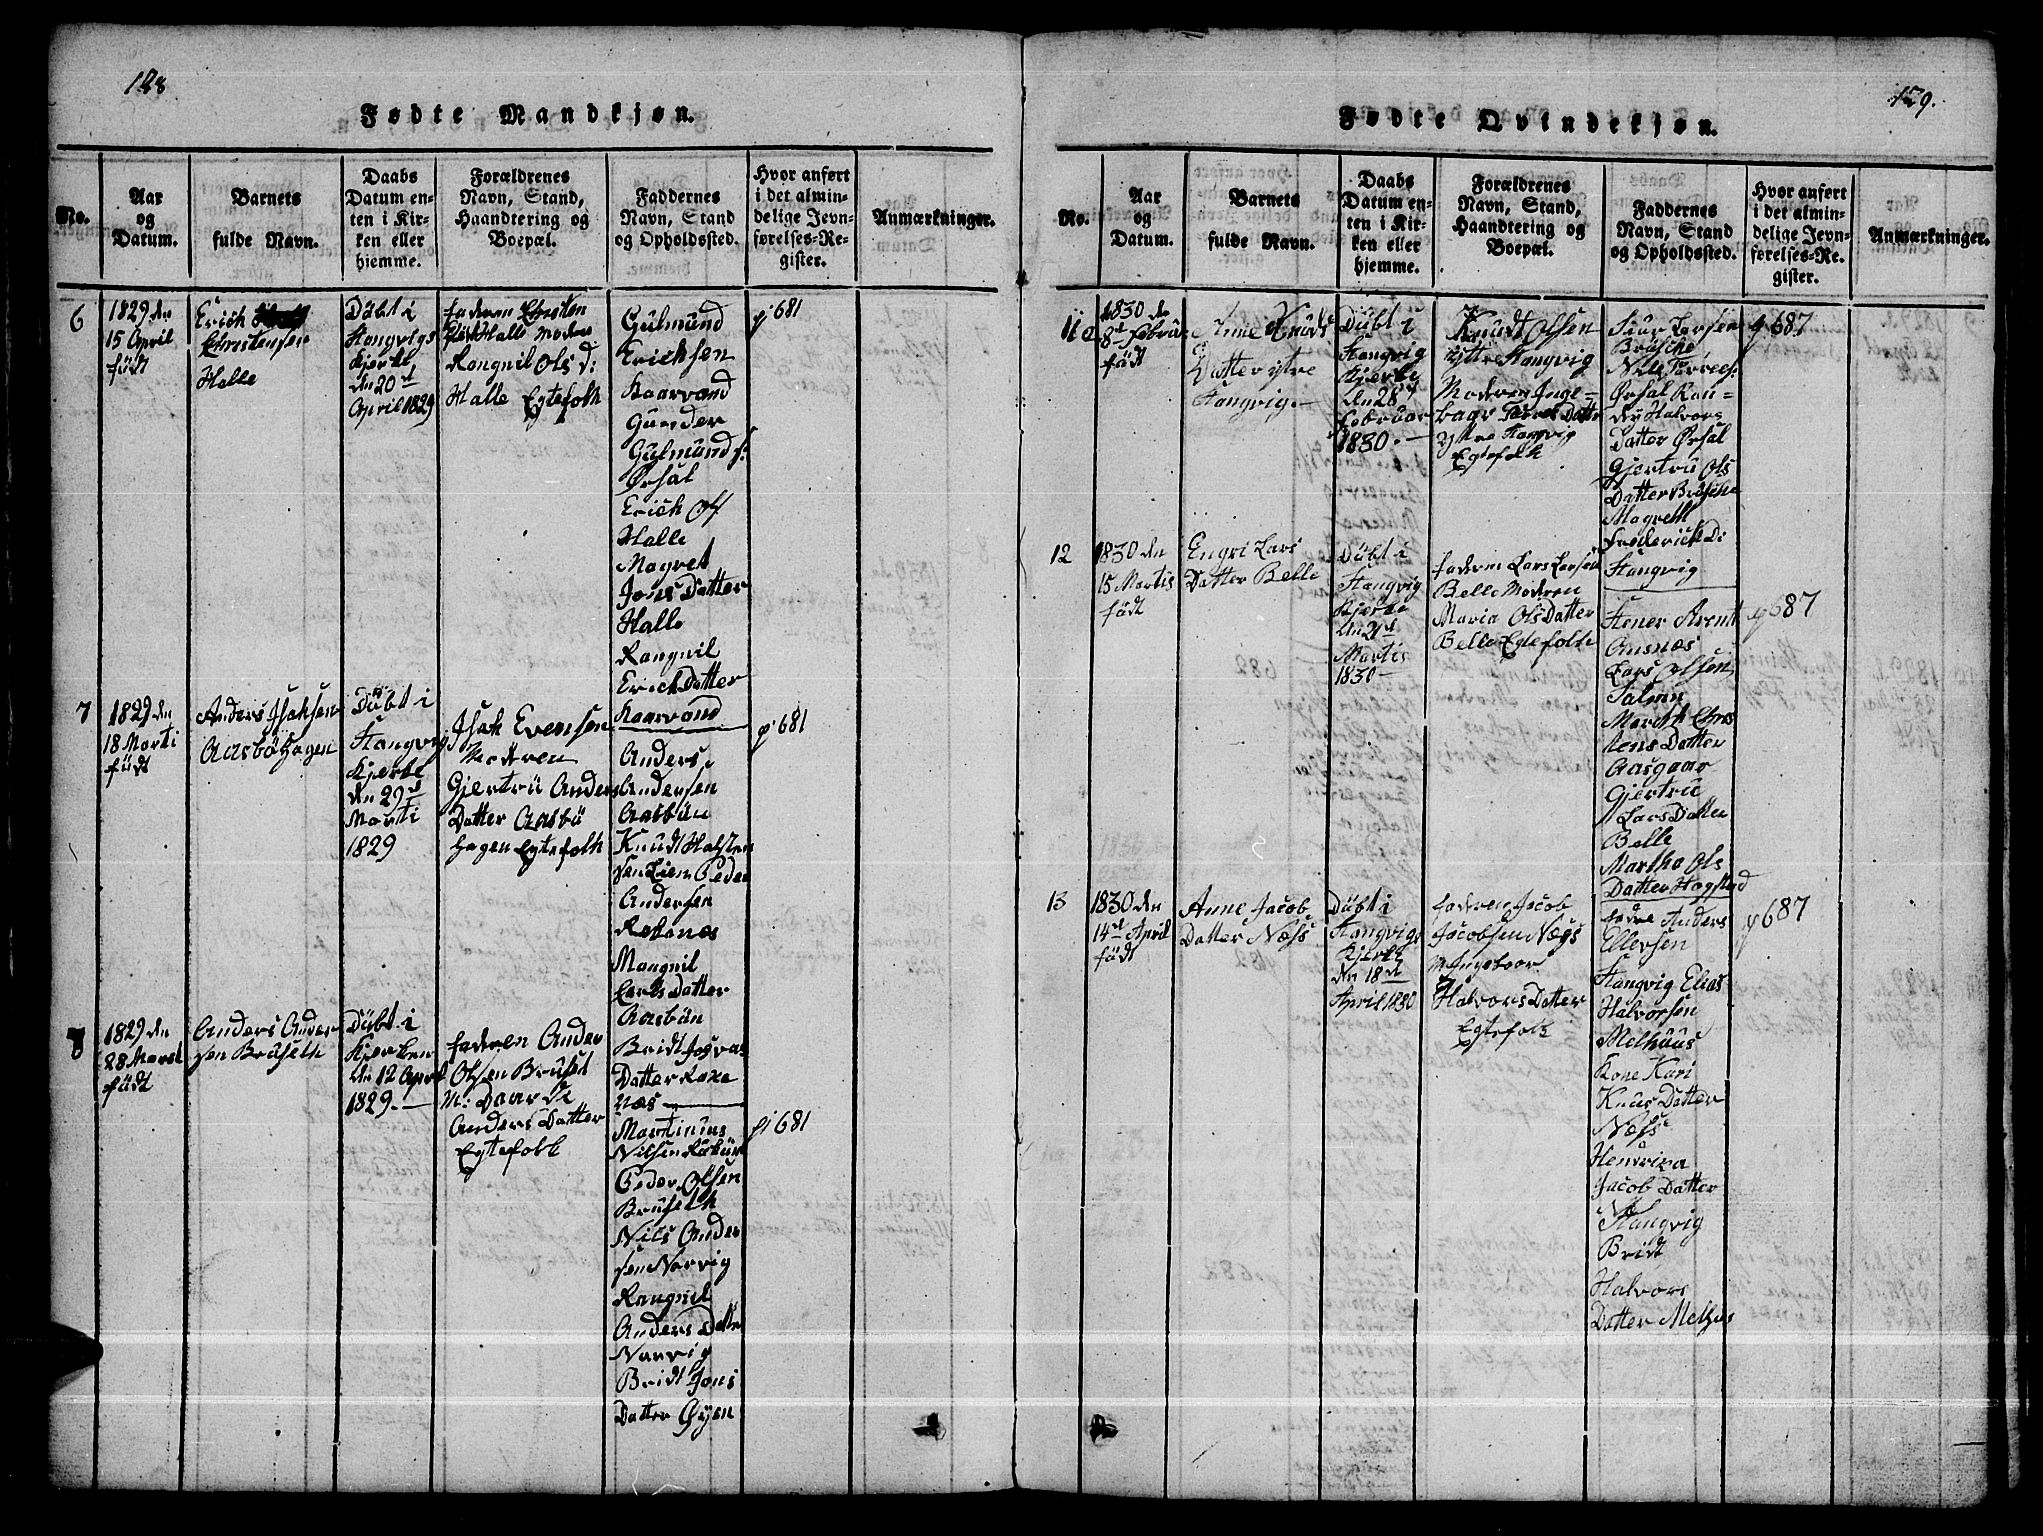 128
Fødte Mandkjøn.
No.
Aar
og
Datum.
Barnets
fulde Navn.
Daabs
Datum en-
ten i Kir-
ken eller
hjemme.
Forældrenes
Navn, Stand,
Haandtering og
Boepæl.
Faddernes
Navn, Stand
og Opholdssted.
Hvor anført
i det almin-
delige Jevn-
førelses-Re-
gister.
Anmærkninger.
6
1829 den
15 April
födt
Erich
Christensen
Halle
Döbt i
Stangvigs
Kjerke
den 20de
April 1829
faderen Christen
Halle Moder
Rangnil Ols D:
Halle Egtefolk
Gulmund
Erichsen
Kaarvand
Gunder
Gulmund s:
Ørsal
Erich Ols
Halle
Magret
Jons Datter
Halle
Rangnil
Erich Datter
Kaarvand
p 681
7
1829 den
18 Marti
födt
Anders Isaksen
Aasböhagen
Döbt i
Stangvig
Kjerke
den 29de
Marti
1829
Isak Evensen
Moderen
Gjertru Anders
Datter Aasbö
hagen Egtefolk
Anders
Andersen
Aasböen
Knudt Halsten
sen Liem Peder
Andersen
Rekanæs
Mangnil
Earls Datter
Aasbön
Bridt
Datter Roxe
næs
p 681
8
1829 den
28 Marst
födt
Anders Ander
sen Bruseth
Döbt i
Kjerken
den 12 April
1829.
faderen Ander
Olsen Bruset
M: Daardi
Anders Datter
Egtefolk
Martinus
Nilsen
Peder Olsen
Bruseth
Nils Ander
sen Norvig
Rangnil
Anders Datter
Narvig
Bridt Jons
Datter Øyen
p 681
129.
Fødte Qvindekjøn.
No.
Aar
og
Datum.
Barnets
fulde Navn.
Daabs
Datum en-
ten i Kir-
ken eller
hjemme.
Forældrenes
Navn, Stand,
Haandtering og
Boepæl.
Faddernes
Navn, Stand
og Opholdssted.
Hvor anført
i det almin-
delige Jevn-
førelses-Re-
gister.
Anmærkninger.
11
1830 de
8de Februar
födt
Anne Knudt
Datter ystre
Stangvig.
Döbt i
Stangvig
Kjerke
den 28de
Februar
1830.
Knudt Olsen
yttre Stangvig
Moderen Inge-
baar Tores Datter
Yttre Stangvig
Egtefolk
Siur Larsen
Bröske
Nils Torres:
Ørsal Ran-
die Halvors
Datter Ørsal
Gjertru Ols
Datter Bröske
Magreth
Frederich D:
Stangvig
p 687
12
1830 den
15 Martis
födt
Engri Lars
Datter Belle
Döbt i
Stangvig
Kjerke
den 21de
Martis
1830
faderen Lars Larsen
Belle Moderen
Maria Ols Datter
Belle Egtefolk
Stener Arent
Ansnæs
Lars Olsen
Talem
Marith Chres
tens Datter
Aasgaar
Gjertru
Lars Datter
Belle
Martha Ols
Datter Hogstad
p 687
13
1830 den
14de April
födt
Anne Jacob
Datter Næss
Döbt i
Stangvigs
Kjerke
den 18de
April 1830
faderen Jacob
Jacobsen Næss
M Ingeboor
Halvors Datter
Egtefolk
fadre Anders
Ellevsen
Stangvig Elias
Halvorsen
Melhuus
Kone Kari
Knus Datter
Næss
Henrika
Jacob Datter
Stangvig
Bridt
Halvors
Datter Melhus
p 687